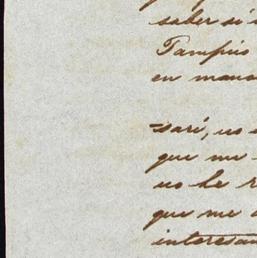 saber si
Tampico
en mano
saré, no
que me
no he r
que me
interesan